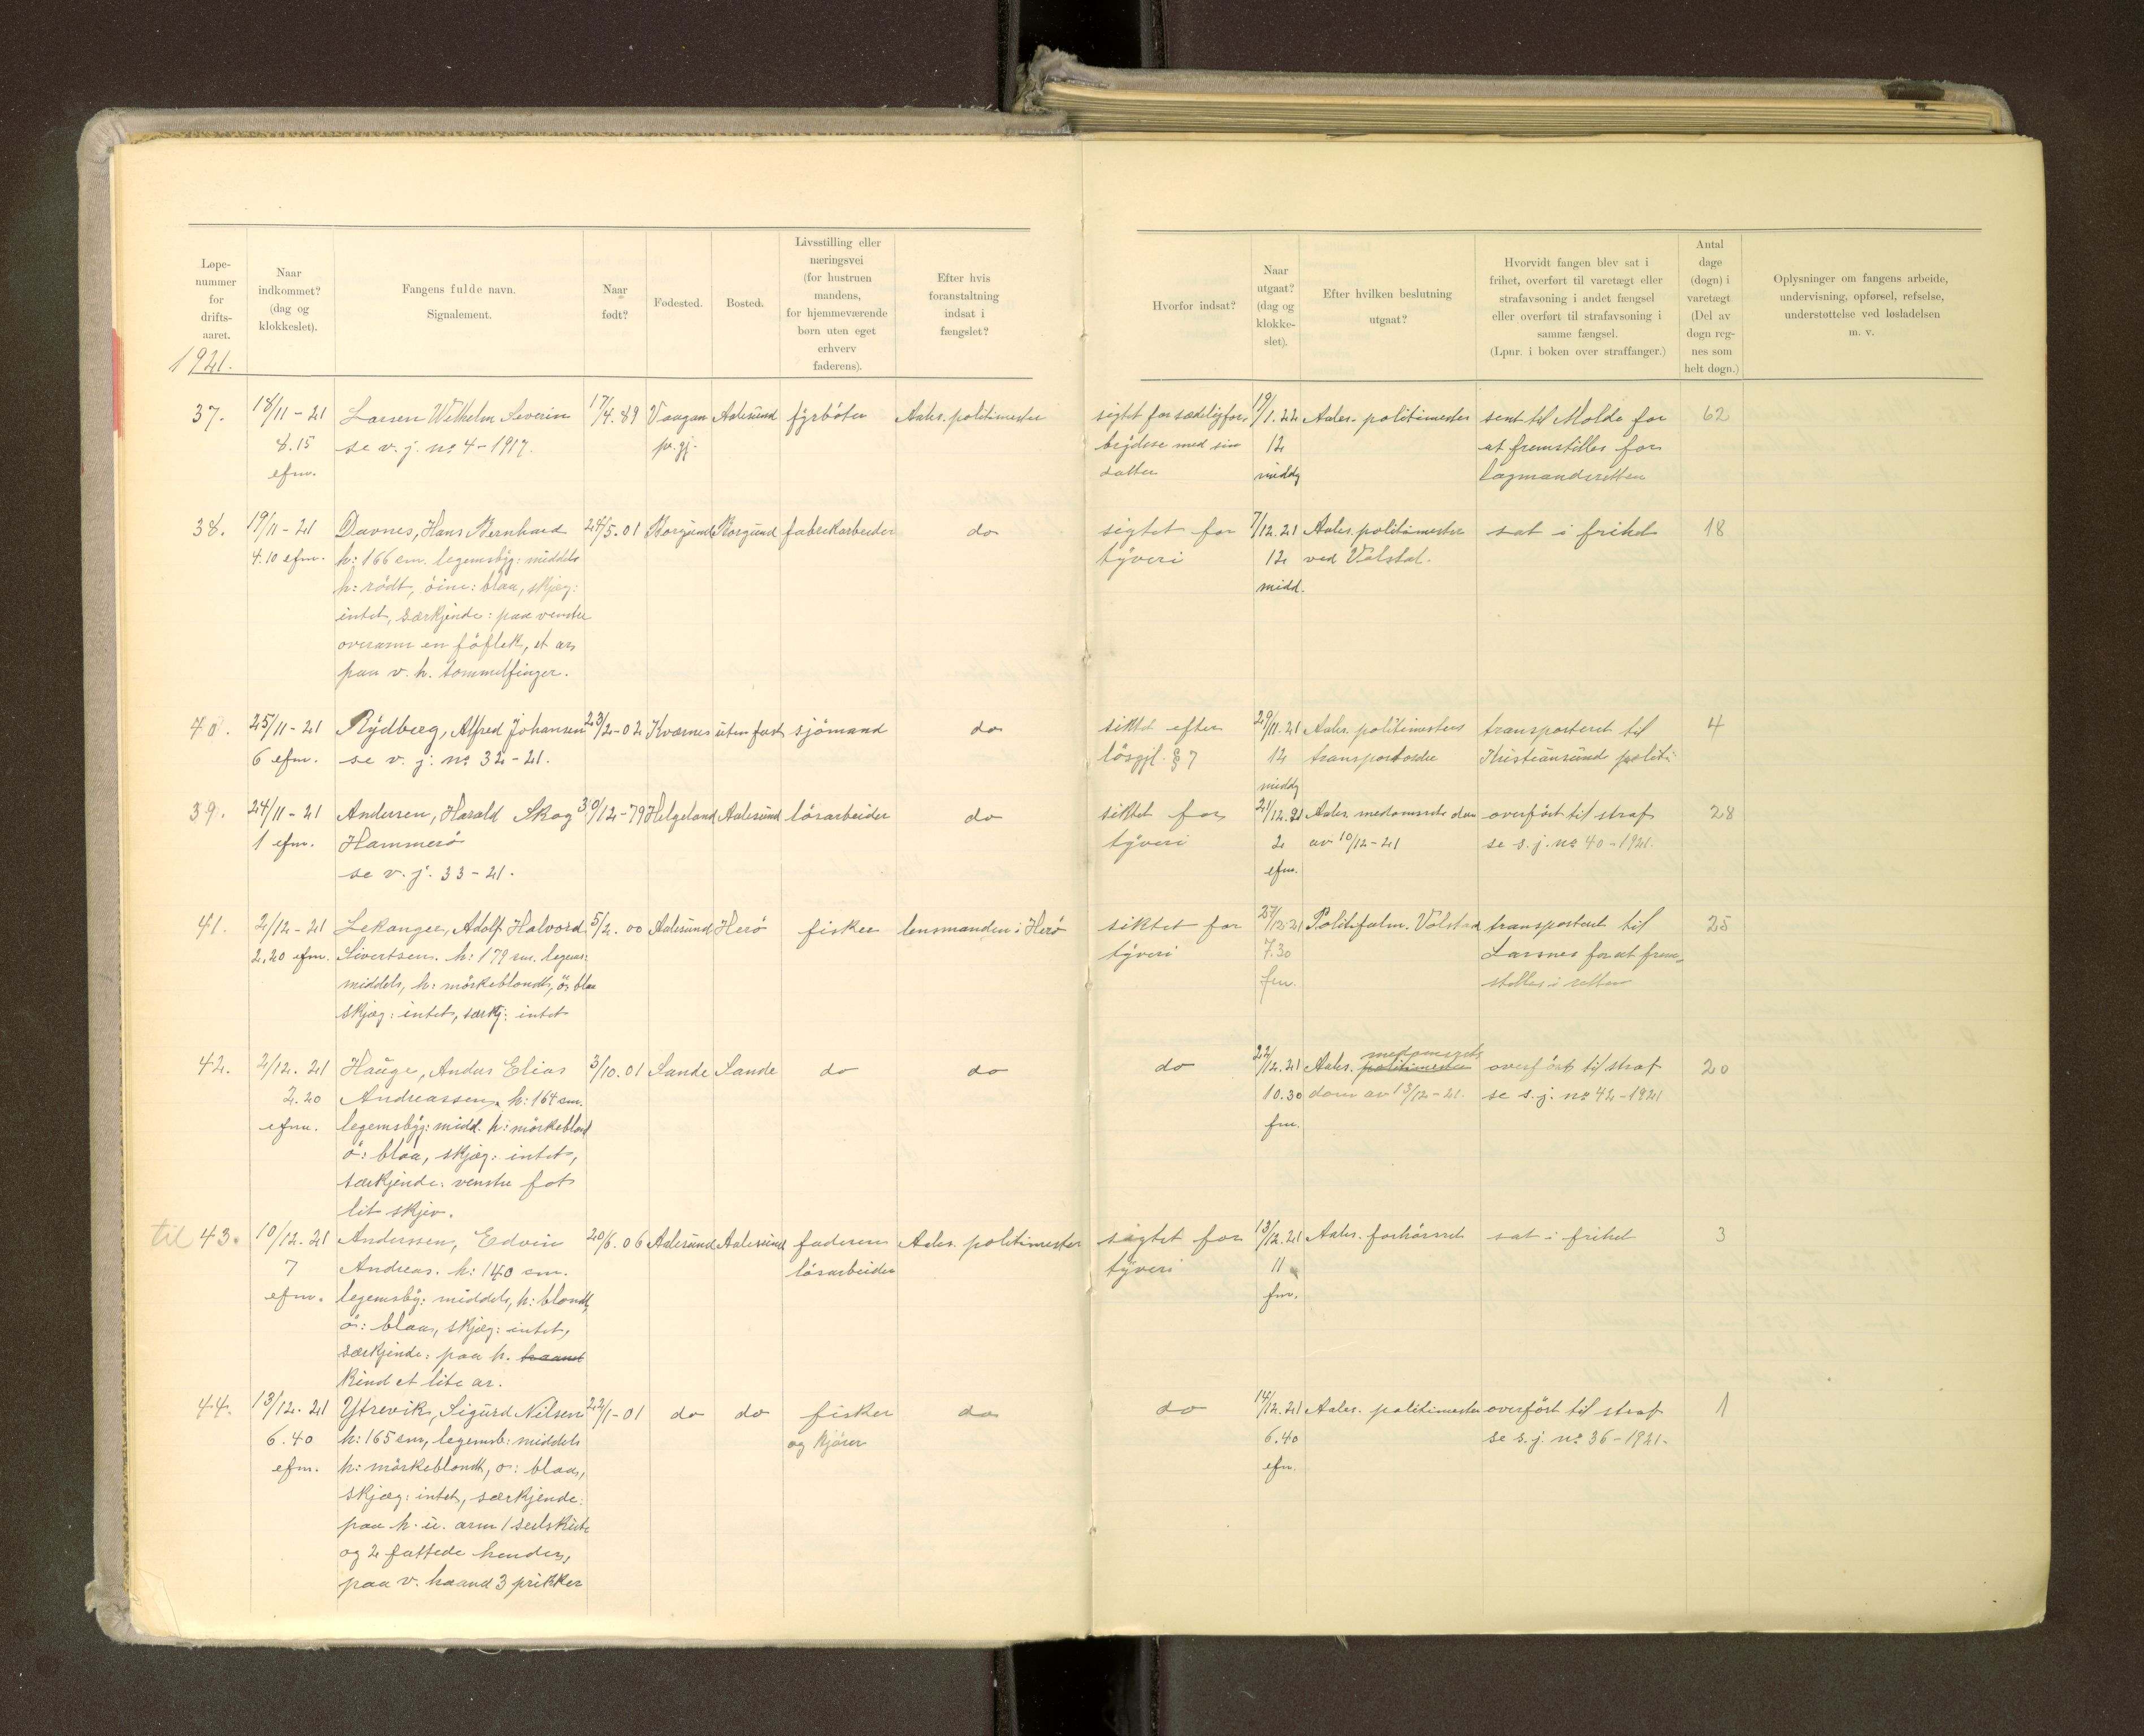 Løpe-
nummer
for
drifts-
aaret.
Naar
indkommet?
(dag og
klokkeslet).
Fangens fulde navn.
Signalement.
Naar
født?
Fødested.
Bosted.
Livsstilling eller
næringsvei
(for hustruen
mandens,
for hjemmeværende
børn uten eget
erhverv
faderens).
Efter hvis
foranstaltning
indsat i
fængslet?
Hvorfor indsat?
Naar
utgaat?
(dag og
klokke-
slet).
Efter hvilken beslutning
utgaat?
Hvorvidt fangen blev sat i
frihet, overført til varetægt eller
strafavsoning i andet fængsel
eller overført til strafavsoning i
samme fængsel.
(Lpnr. i boken over straffanger.)
Antal
dage
(døgn) i
varetægt
(Del av
døgn reg-
nes som
helt døgn.)
Oplysninger om fangens arbeide,
undervisning, opførsel, refselse,
understøttelse ved løsladelsen
m. v.
1921.
37. 18/11-21 Larsen Wilhelm Severin 17/4.89 Vaagan Aalesund fyrbøter Aales. politimester sigtet for sædelighfor- 19/1.22 Aales. politimester sent til Molde for 62
8.15 se v. j. no 4-1917. pr. gj. brydelse med sin 12 at fremstilles for
efm. datter middg lagmandsretten
38. 19/11-21 Davnes, Hans Bernhard 24/5.01 Borgund Borgund fabrikarbeider do sigtet for 7/12.21 Aales. politimester sat i frihet 18
4.10 efm. h: 166 cm. legemsbyg: middels tyveri 12 ved Volstad.
h: rødt, øine: blaa, skjæg: midd.
intet, særkjende: paa venstre
overarm en føflek, et ar
paa v. h. tommelfinger.
40. 25/11-21 Rydberg, Alfred Johansen 23/2-02 Kværnes uten fast sjømand do siktet efter 29/11.21 Aales. politimesters transporteret til 4
6 efm. se v. j. no 32-21. løsgjl. § 7 12 transportordre Kristiansund politi-
middg
39. 24/11-21 Andersen, Harald Skog 30/12-79 Helgeland Aalesund løsarbeider do siktet for 21/12.21 Aales. medomsrets dom overført til straf 28
1 efm. Hammerø tyveri 2 av 10/12-21 se s. j. no 40-1921.
se v. j. 33-21. efm.
41. 2/12-21 Lekanger, Adolf Halvord 5/2.00 Aalesund Herø fisker lensmanden i Herø siktet for 27/12.21 Politifulm. Volstad transporteret til 25
2.20 efm. Sivertsen. h: 179 cm. legems: tyveri 7.30 Larsnes for at frem-
middels, h: mørkeblondt, ø: blaa fm. stilles i retten
skjæg: intet, særkj: intet
42. 2/12.21 Hauge, Anders Elias 3/10.01 Sande Sande do do do 22/12.21 Aales. politimester overført til straf 20
2.20 Andreassen. h: 164 cm. 10.30 dom av 13/12-21. se s. j. no 42-1921
efm. legemsbyg: midd. h: mørkeblond fm.
ø: blaa, skjæg: intet,
særkjende: venstre fot
lit skjev.
til 43. 10/12.21 Anderssen, Edvin 20/6.06 Aalesund Aalesund faderen Aales. politimester sigtet for 13/12.21 Aales. forhørsret sat i frihet 3
7 Andreas. h: 140 cm. løsarbeider tyveri 11
efm. legemsby: middels, h: blondt, fm.
ø: blaa, skjæg: intet,
særkjende: paa h. haand
kind et lite ar.
44. 13/12.21 Ytrevik, Sigurd Nilsen 22/1-01 do do fisker do do 14/12.21 Aales. politimester overført til straf 1
6.40 h: 165 cm, legemsb: middels og kjører 6.40 se s. j. no 36-1921.
efm. h: mørkeblondt, ø: blaa, efm.
skjæg: intet, særkjende:
paa h. u. arm 1 seilskute
og 2 fattede hender,
paa v. haand 3 prikker